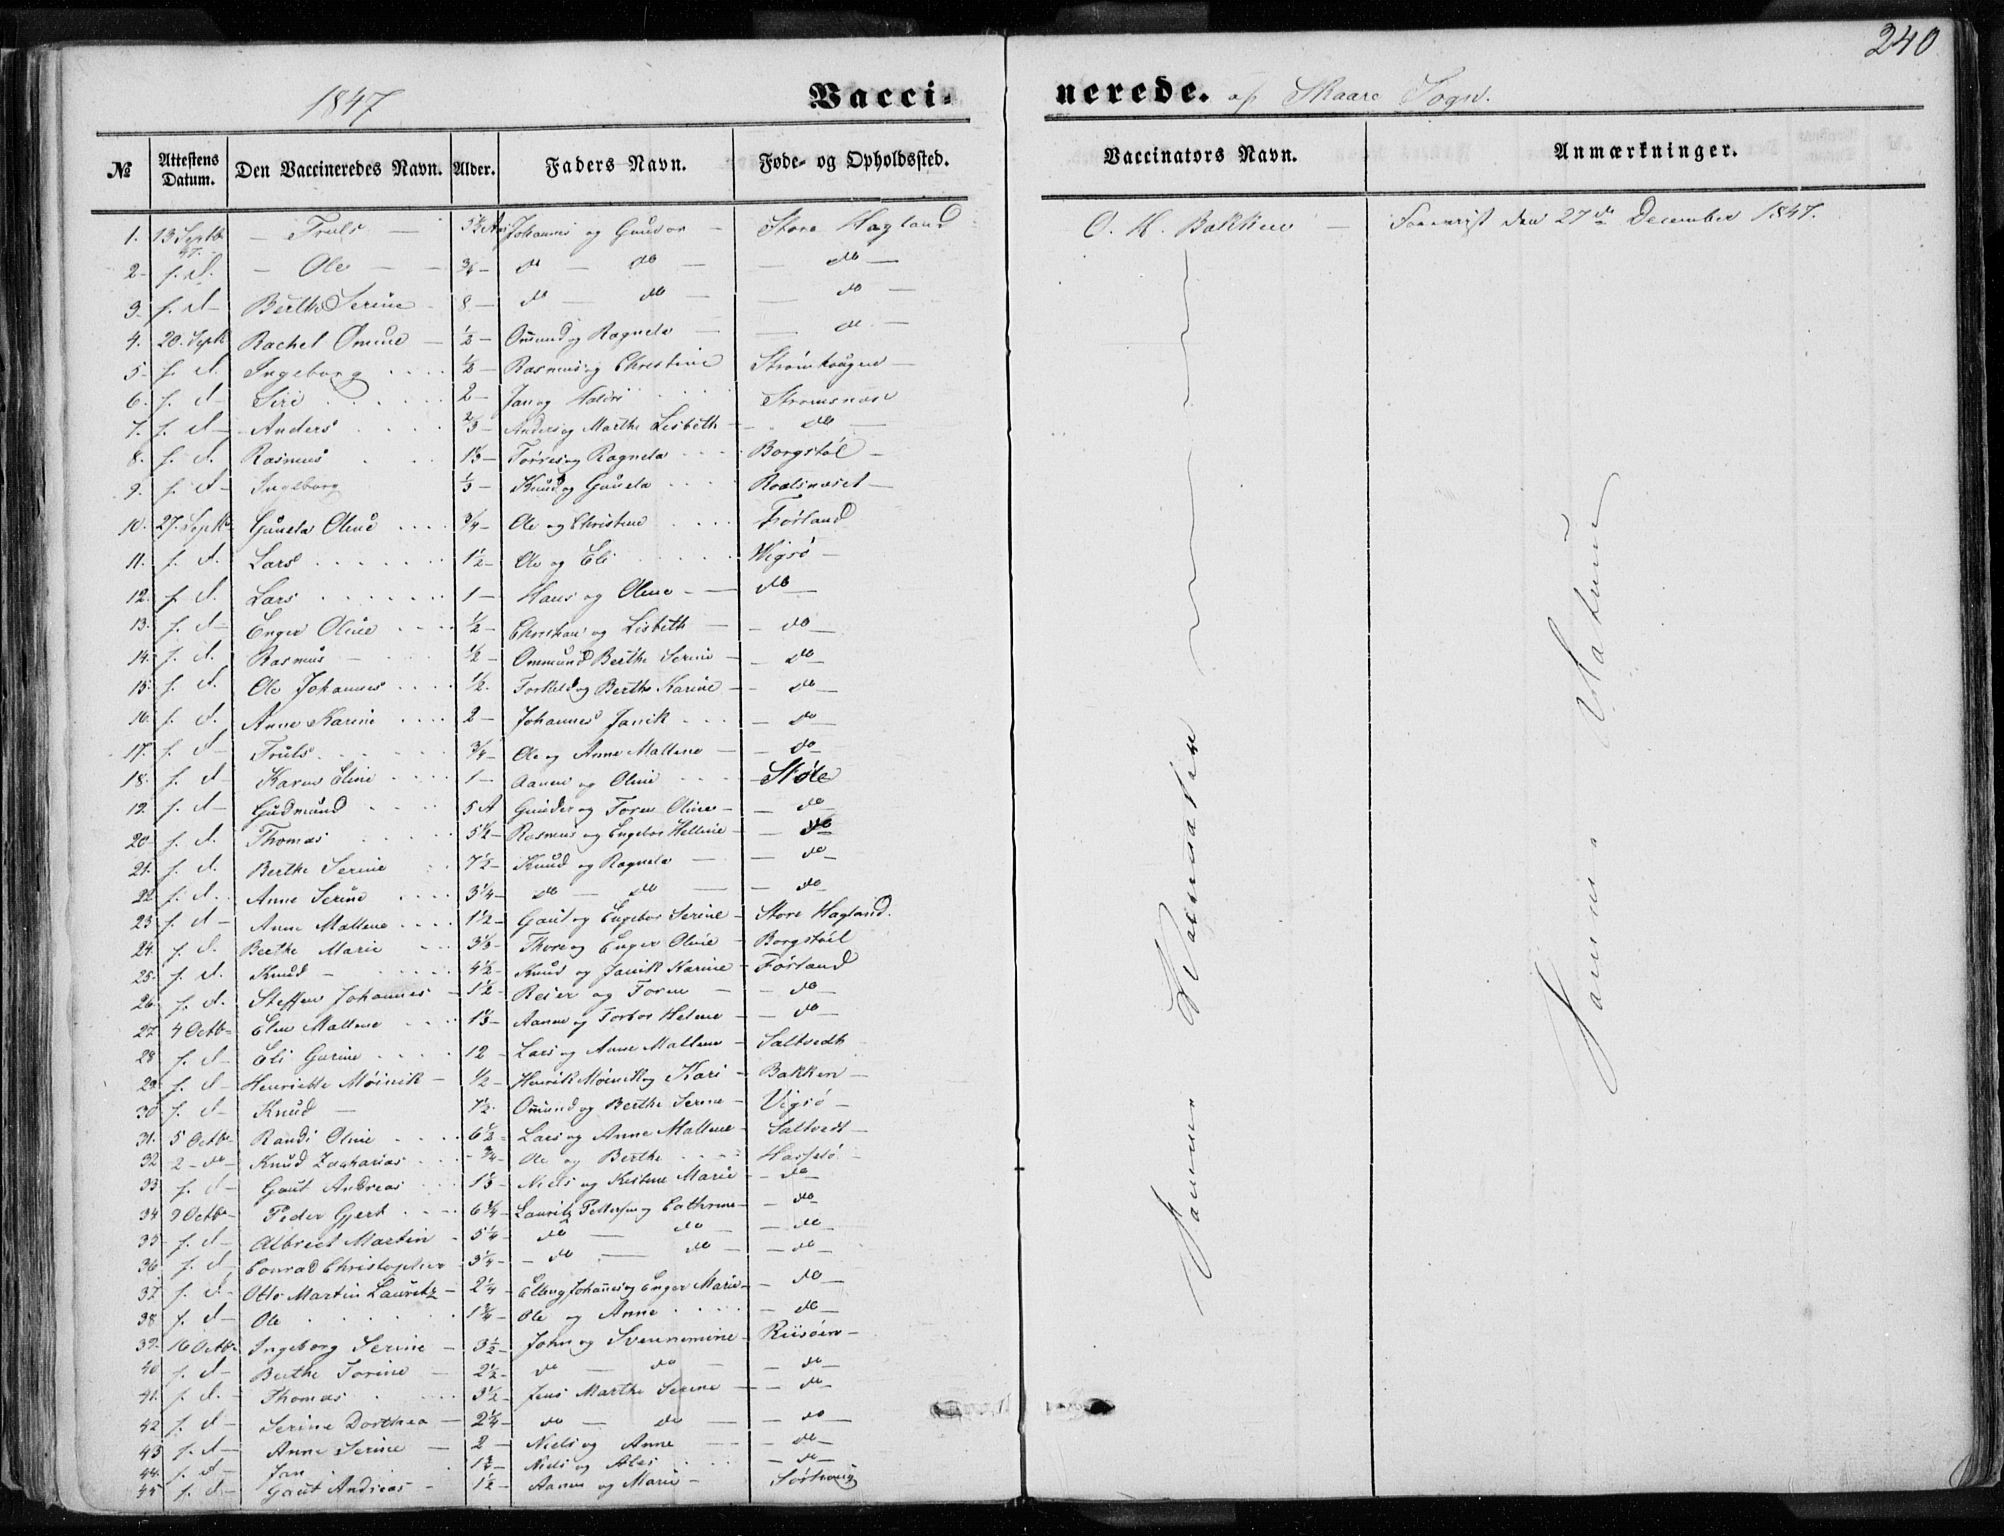 240
1847
Vacci- nerede. af Skaare Sogn.
№ Attestens Datum. Den Vaccineredes Navn. Alder. Faders Navn. Føde- og Opholdssted. Vaccinators Navn. Anmærkninger.
1. 13 Septb 47. — Truls — 5½ A Johannes og Gunvor — Store Hagland O. H. Bakken — Foreviist den 27de December 1847.
2- f. d. — Ole — — ¾ — do — do — — do —
3. f. d — Berthe Serine - 8 — do — do — do —
4. 20. Septb Rachel Omine — ½ — Omund og Ragnela — — do. —
5. f. d. Ingeborg . . . . ½ — Rasmus og Christine —
6. f. d — Siri . . . . . . 2 — Jan og . . . . Stromsnæs
7. f. d — Anders . . . . ⅔ — Anders og Marthe Lisbeth — — do —
8. f. d. Rasmus . . 1⅓ — Torres og Ragnela . . . Borgstøl —
9. f. d — Ingeborg ⅓ — Knud og Gunela . . . .
10. 27. Septb Gunela Oline . . . . ¾ — Ole og Christine . . . . Førland
11. f. d. Lars . . . . . . 1½ — Ole og Eli . . . . . Vigsø —
12. f. d. Lars . . . . . . 1 — Hans og Oline — — do —
13. f. d — Enger Oline . . . . ½ — Christian og Lisbeth — — do —
14. f. d. Rasmus — . . . ½ — Ommund Berthe Serine — — do —
15. f. d. Ole Johannes . . . . ½. Torkeld og Berthe Karine — — do —
16. f. d. Anne Karine . . . . 2 — Johannes Janik . . . — do —
17. f. d — Truls . . . . . ¾ — Ole og Anne Mallene — — do —
18. f. d — Karen Eline . . . . 1 — Aanen og Oline . . . — Støle
19. f. d — Gudmund . . . . 5 A Gunder og Toren Oline — — do —
20. f. d. Thomas . . . . . 5½ — Rasmus og Engebor Helline — — do —
21. f. d. Berthe Serine . . 7½ — Knud og Ragnela — — do —
22. f. d. Anne Serine . . . . 3¼ — do — do — — do —
23. f. d — Anne Mallene . . . . 1½ — Gaut og Engebor Serine — Store Hagland.
24. f. d. Berthe Marie . . . 3⅓ — Thore og Enger Oline — Borgstøl
25. f. d. Knud — . . . . . 4½ — Knud og Janik Karine — Førland
26. f. d. Steffen Johannes — 1½ — Reier og Toren — — do —
27. 4 Octb — Elen Mallene . . . . 1⅓ — Aanen og Torbor Helene — — do —
28. f. d — Eli Gurine . . . . 12 — Lars og Anne Mallene — Saltvedt
29. f. d — Henriette Møinik — ½ — Henrik Møinik og Kari — Bakken —
30 f. d — Knud — 7½. Omund og Berthe Serine — Vigsø —
31. 5 Octb — Randi Oline . . . . 6½ — Lars og Anne Mallene — Saltvedt —
32 2 — do — Knud Zacharias . . . — ¾ — Ole og Berthe . . . .
33 f. d — Gaut Andreas . . . 1⅓ — Niels og Kistene Marie — — do —
34 9 Octb — Peder Gjert . . . . 6¾ — Lauritz Pettersen og Cathrine — — do —
35. f. d — Albrect Martin — 5¼ — do — do — — do —
36 f. d — Conrad Christopher — 3¼ — do — do — — do —
37. f. d — Otto Martin Lauritz — 2¼ — Elling Johannes og Enger Marie — — do —
38 f. d — Ole . . . . . . 1¾ — Ole og Anne . . . . — do —
39. 16 Octb — Ingeborg Serine — 3½ — John og Svennemine — Riisøen —
40 f. d — Berthe Torine — 2½ — do — do — — do —
41. f. d. — Thomas . . 3½ — Jens Marthe Serine — — do —
42 f. d — Serine Dorthea — 2¼ — do — do — — do —
43 f. d — Anne Serine — 2 — Niels og Anne — — do —
44. f. d — Jan . Niels og . . — do —
45 f. d — Gaut Andreas — 1½ — Aanen og Marie —
Samme Vaccinator
Samme Datum